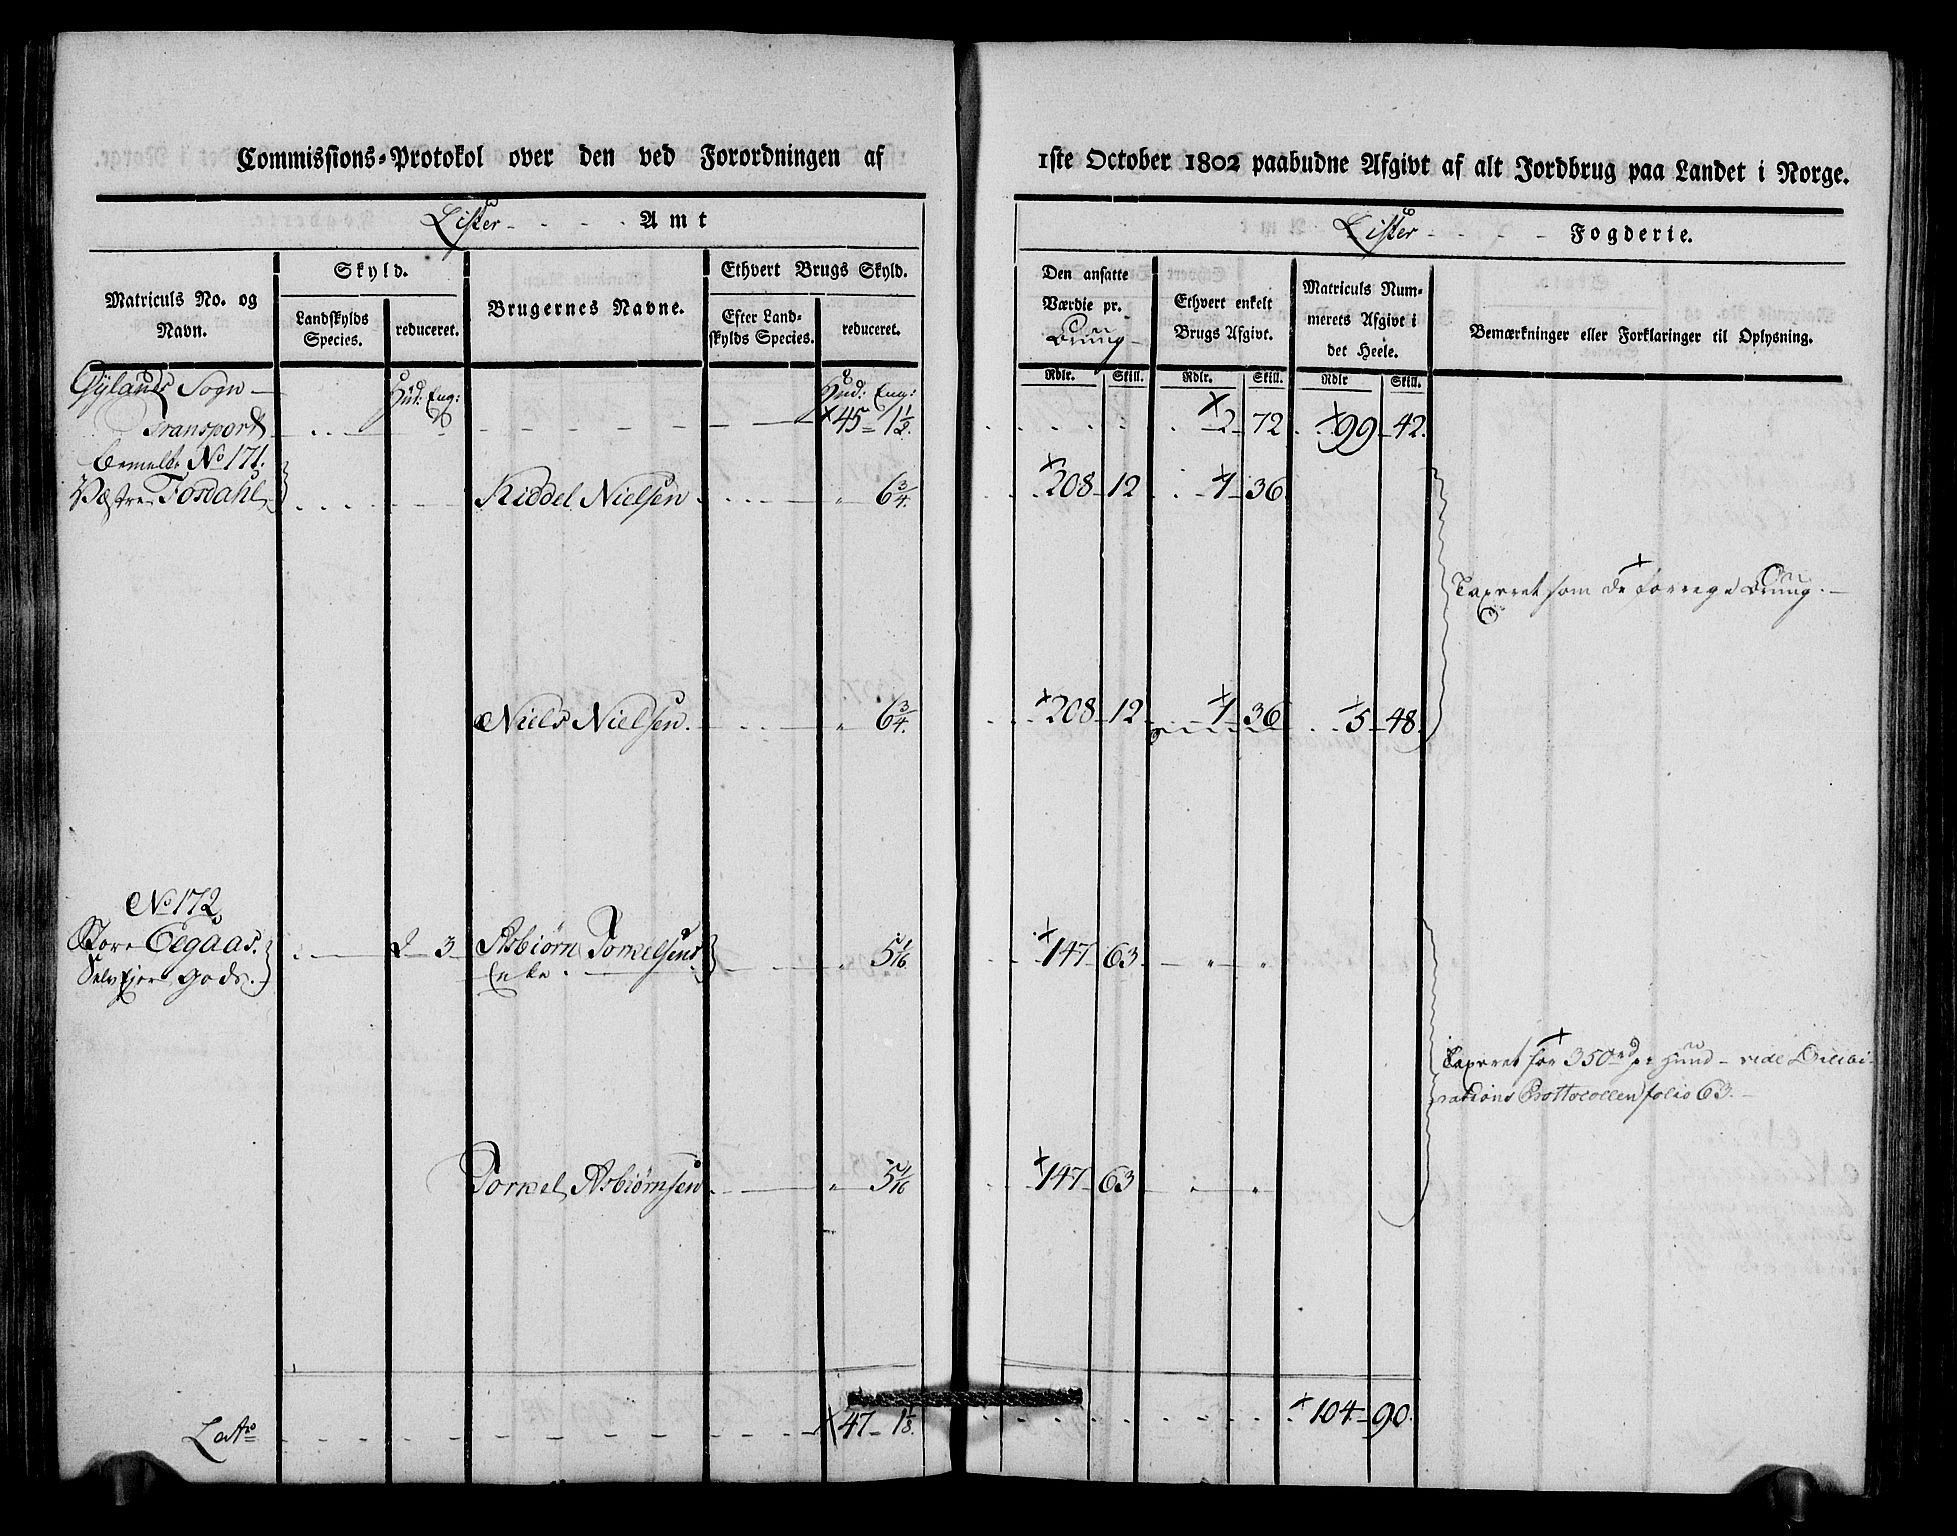 Commissions-Protokol over den ved Forordningen af
Lister Amt
Matriculs No. og Navn.
Skyld.
Landskylds Species.
reduceret.
Brugernes Navne.
Ethvert Brugs Skyld.
Efter Landskylds Species.
reduceret.
Gylands Sogn
Hud: Eng:
Hud: Eng:
Transport
×45 1½
bemelte No 171.
Vestre Fosdahl
Kiddel Nielsen " 6¾
Niels Nielsen " 6¾
No 172
Store Eegaas.
Selv Ejer Gods.
2 3
Asbiørn Torkelsens " 5 1/16
Enke
Torkel Asbiørnsen " 5 1/16
Lat
×47 1⅛
1ste October 1802 paabudne Afgivt af alt Jordbrug paa Landet i Norge.
Lister Fogderie.
Den ansatte Værdie pr. Brug
Ethvert enkelt Brugs Afgivt.
Matriculs Nummerets Afgivt i det Heele.
Bemærkninger eller Forklaringer til Oplysning.
Rdlr. Skill. Rdlr. Skill. Rdlr Skill.
×2 72 ×99 42
×208 12 ×1 36
Taxeret som de forrege Brug.
×208 12 ×1 36 ×5 48
×147 63 " "
Taxeret for 350 rd pr Huud vide
Prottocollen folio 63.
×147 63 " "
×104 90